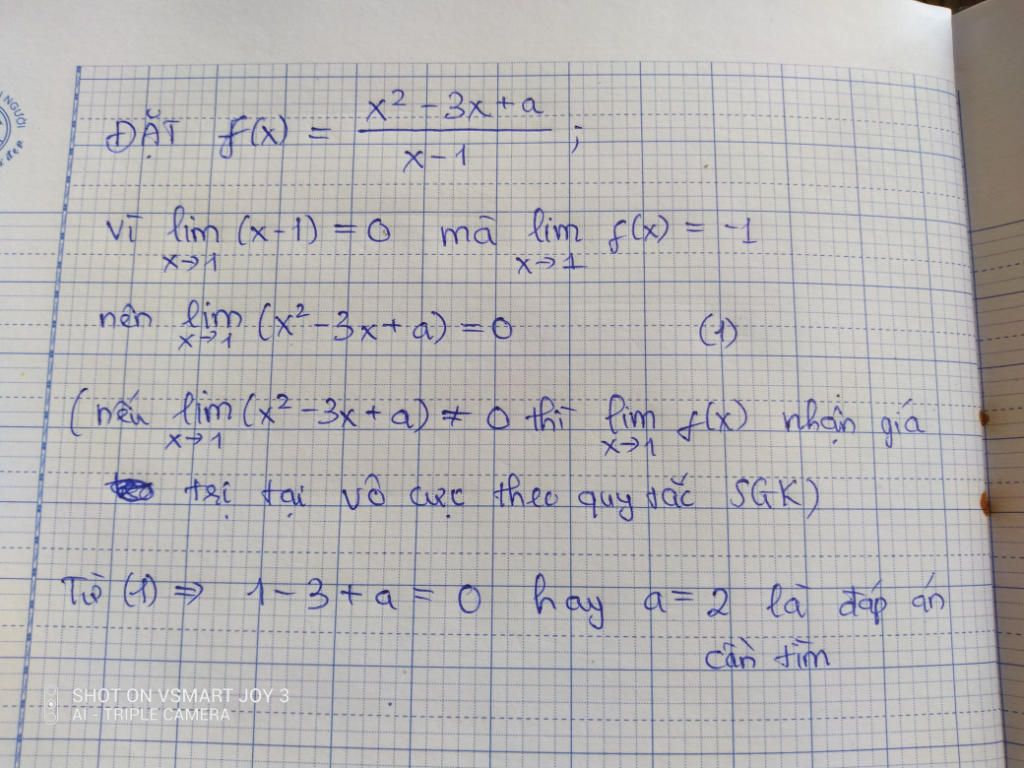 NGƯỜI
ĐẶT f(x) = \frac{x² - 3x + a}{x - 1} ;
Vì \lim_{x→1} (x-1) = 0 mà \lim_{x→1} f(x) = -1
nên \lim_{x→1} (x² - 3x + a) = 0 (1)
(nếu \lim_{x→1} (x² - 3x + a) ≠ 0 thì \lim_{x→1} f(x) nhận giá
trị tại vô cực theo quy tắc SGK)
Từ (1) ⇒ 1 - 3 + a = 0 hay a = 2 là đáp án
cần tìm
SHOT ON VSMART JOY 3
AI - TRIPLE CAMERA